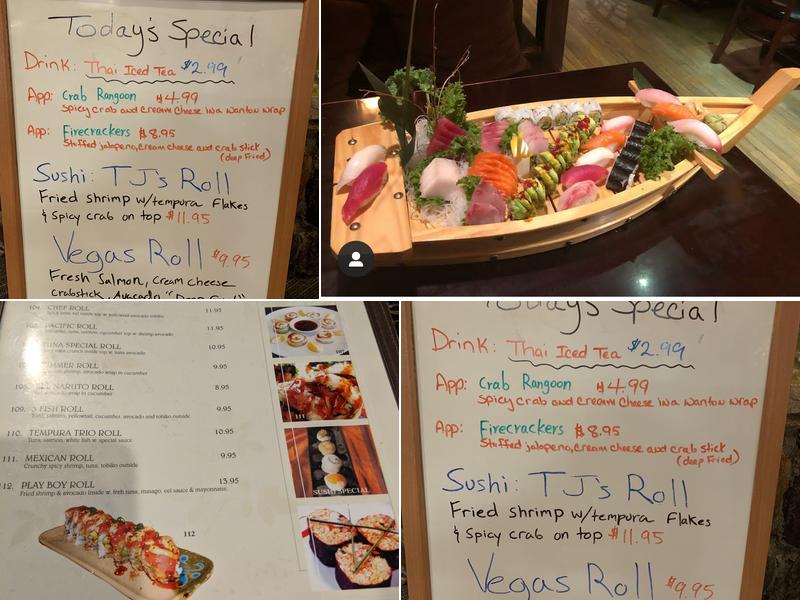 Today's Special
Drink: Thai Iced Tea $2.99
App: Crab Rangoon $4.99
Spicy crab and cream cheese in a wanton wrap
App: Firecrackers $8.95
Stuffed jalapeno, cream cheese and crab stick
(deep fried)
Sushi: TJ's Roll
Fried shrimp w/tempura Flakes
& Spicy crab on top $11.95
Vegas Roll $9.95
Fresh Salmon, Cream cheese
Crabstick, Avacado "Deep
104. CHEF ROLL 11.95
PACIFIC ROLL 11.95
TUNA SPECIAL ROLL 10.95
9.95
NARUTO ROLL 8.95
109. FISH ROLL 9.95
Tuna, salmon, yellowtail, cucumber, avocado and tobiko outside
110. TEMPURA TRIO ROLL 10.95
Tuna, salmon, white fish w. special sauce
111. MEXICAN ROLL 9.95
Crunchy spicy shrimp, tuna, tobiko outside
112. PLAY BOY ROLL 13.95
Fried shrimp & avocado inside w. fresh tuna, masago, eel sauce & mayonnaise.
112
111
SUSHI SPECIAL
Today's Special
Drink: Thai Iced Tea $2.99
App: Crab Rangoon $4.99
Spicy crab and cream cheese in a wanton wrap
App: Firecrackers $8.95
Stuffed jalapeno, cream cheese and crab stick
(deep fried)
Sushi: TJ's Roll
Fried shrimp w/tempura Flakes
& Spicy crab on top $11.95
Vegas Roll $9.95